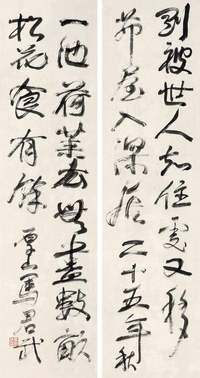 剛被世人知住處又移
茅屋入深居 二十五年秋
一池荷葉衣無盡數畝
松花食有餘 厚山馬君武